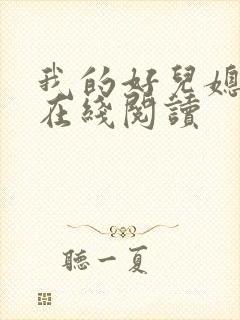 我的好兒媳
在綫閱讀
聽一夏